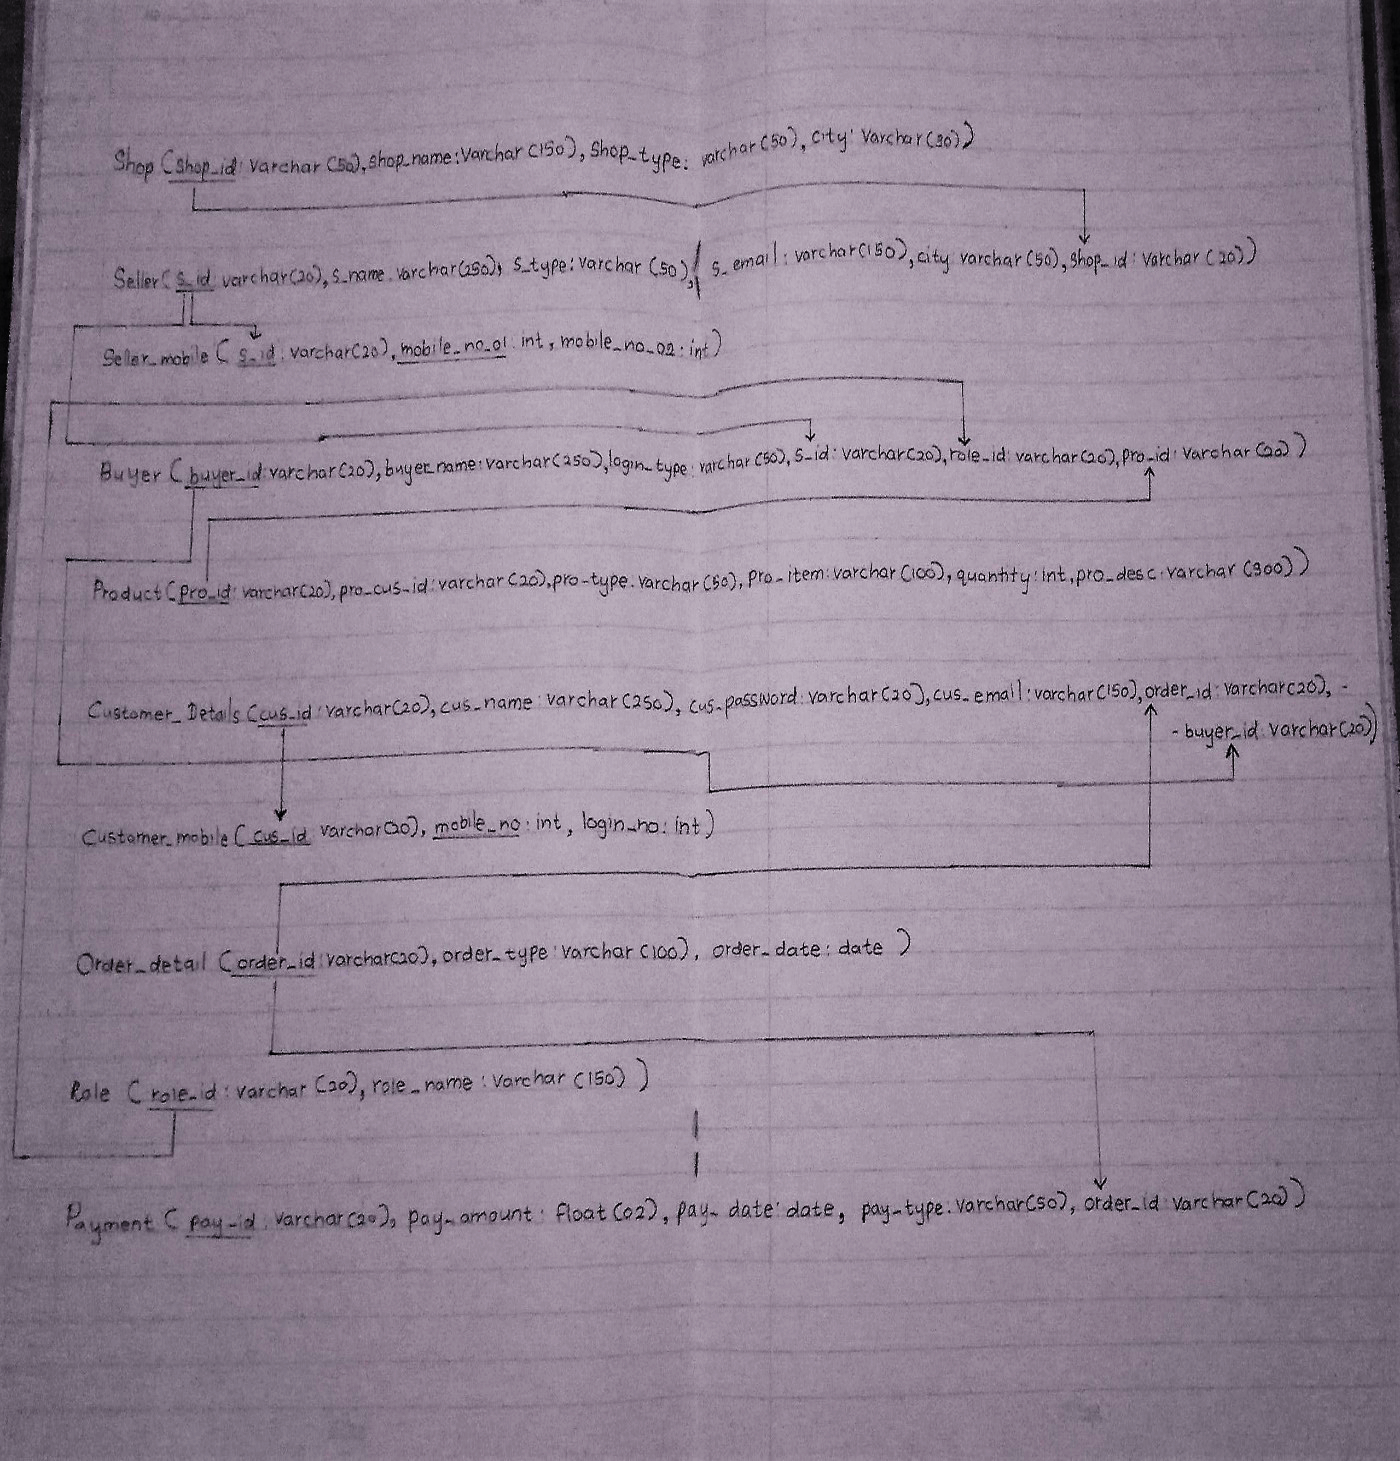 Shop (shop_id: varchar (50), shop_name: Varchar (150), Shop_type: varchar (50), city: Varchar (30))
Seller (s_id: varchar(20), s_name: varchar(250), s_type: varchar (50), s_email: varchar(150), city: varchar (50), shop_id: varchar (20))
Seller_mobile ( s_id: varchar(20), mobile_no_01: int, mobile_no_02: int)
Buyer (buyer_id: varchar(20), buyer_name: varchar(250), login_type: varchar (50), s_id: varchar(20), role_id: varchar(20), pro_id: varchar (20))
Product (pro_id: varchar(20), pro_cus_id: varchar (20), pro-type: varchar (50), pro_item: varchar (100), quantity: int, pro_desc: varchar (300))
Customer_Details (cus_id: varchar(20), cus_name: varchar (250), cus_password: varchar (20), cus_email: varchar (150), order_id: varchar(20), -
- buyer_id: varchar(20))
Customer_mobile (cus_id varchar(20), mobile_no: int, login_no: int)
Order_detail (order_id: varchar(20), order_type: varchar (100), order_date: date )
Role ( role_id: varchar (20), role_name: varchar (150) )
Payment ( pay_id: varchar(20), pay_amount: float (02), pay_date: date, pay_type: varchar(50), order_id: varchar (20))